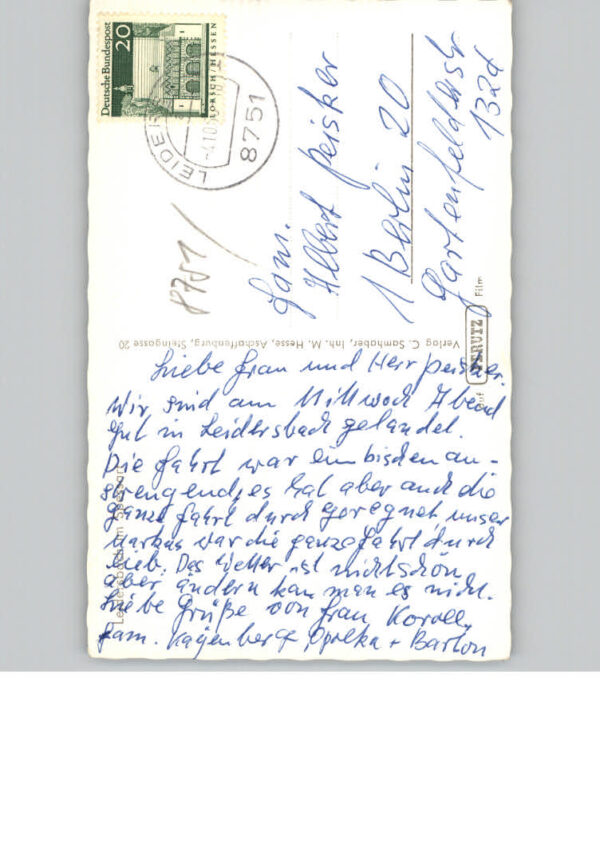 Deutsche Bundespost
20
LORSCH/HESSEN
8751
8751
Fam.
Albert Peisker
1 Berlin 20
Gartenfelderstr
132d
Verlag C. Samhaber, Inh. M. Hesse, Aschaffenburg, Steingasse 20
auf PERUTZ Film
Liebe Frau und Herr Peisker.
Wir sind am Mittwoch Abend
gut in Leidersbach gelandet.
Die Fahrt war ein bischen an-
strengend, es hat aber auch die
ganze Fahrt durch geregnet unser
Markus war die ganze Fahrt durch
lieb. Das Wetter ist nicht schön
aber ändern kan man es nicht.
Liebe Grüße von Frau
Fam. + Barton
Leidersbach im Spessart